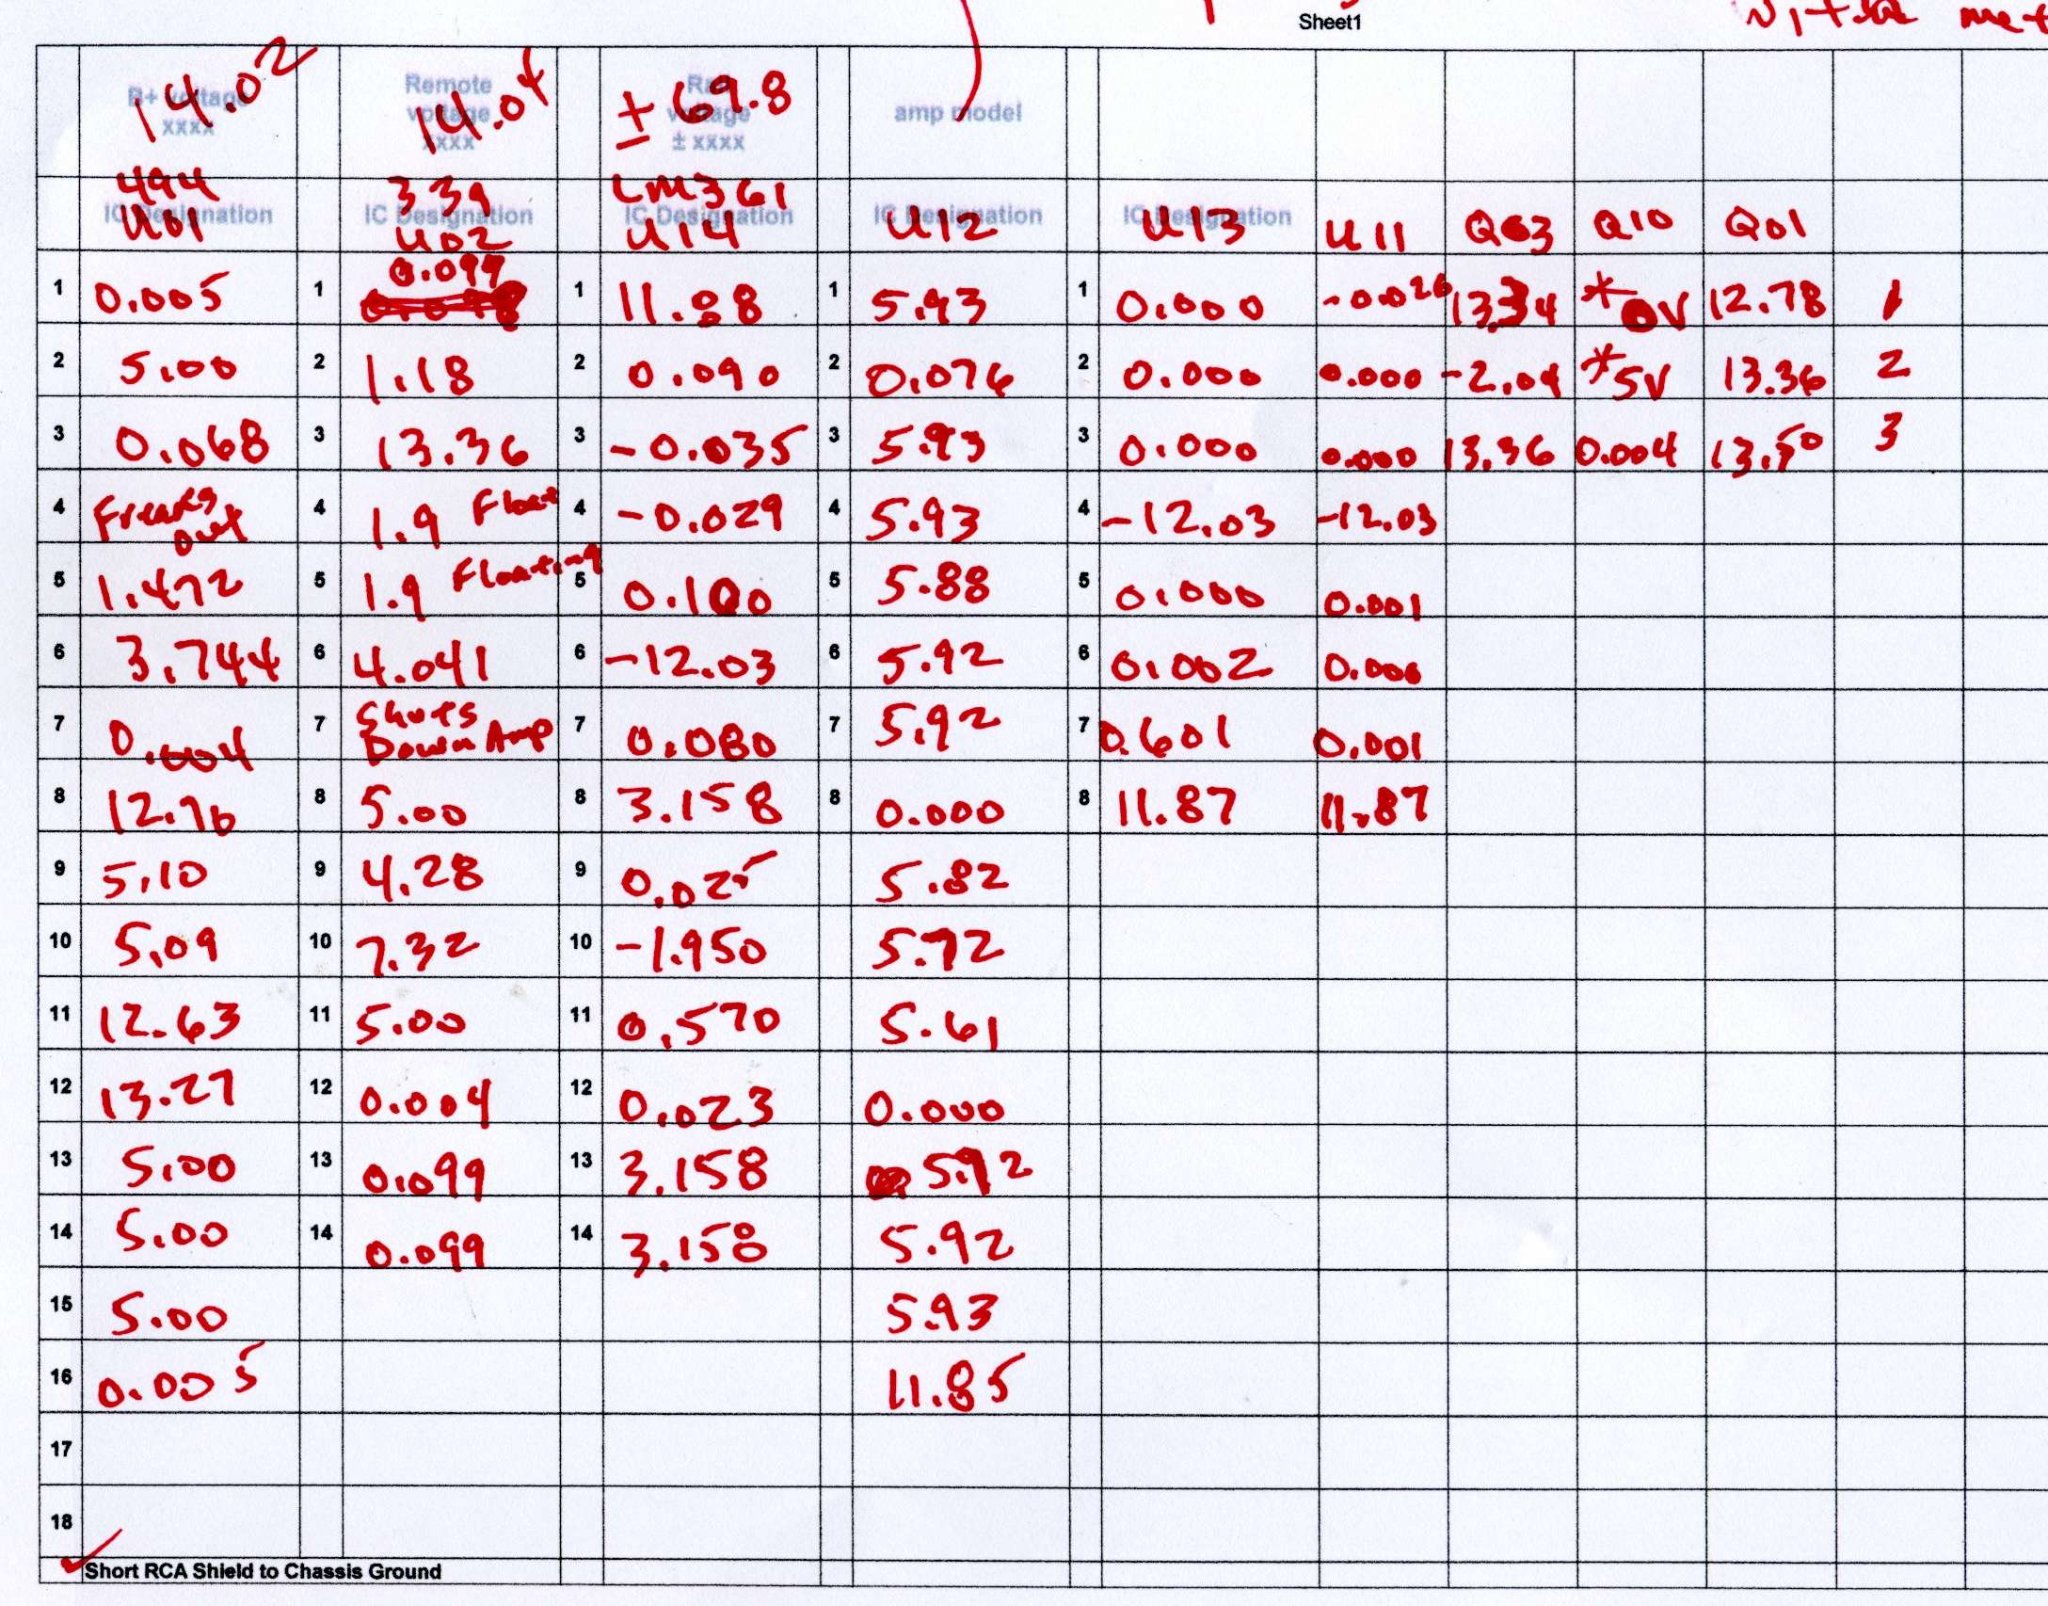 Sheet1
B+ voltage xxxx 14.02 Remote voltage xxxx 14.04 Rail voltage ± xxxx ± 69.8 amp model
494 339 LM361
IC Designation IC Designation IC Designation IC Designation IC Designation
U01 U02 U14 U12 U13 U11 Q03 Q10 Q01
1 0.005 1 0.099 1 11.88 1 5.93 1 0.000 -0.026 13.34 *0V 12.78 1
2 5.00 2 1.18 2 0.090 2 0.076 2 0.000 0.000 -2.04 *5V 13.36 2
3 0.068 3 13.36 3 -0.035 3 5.93 3 0.000 0.000 13.36 0.004 13.50 3
4 Freaks out 4 1.9 Float 4 -0.029 4 5.93 4 -12.03 -12.03
5 1.472 5 1.9 Floating 5 0.100 5 5.88 5 0.000 0.001
6 3.744 6 4.041 6 -12.03 6 5.92 6 0.002 0.000
7 0.004 7 Shuts Down Amp 7 0.080 7 5.92 7 0.601 0.001
8 12.76 8 5.00 8 3.158 8 0.000 8 11.87 11.87
9 5.10 9 4.28 9 0.025 5.82
10 5.09 10 7.32 10 -1.950 5.72
11 12.63 11 5.00 11 0.570 5.61
12 13.27 12 0.004 12 0.023 0.000
13 5.00 13 0.099 13 3.158 5.92
14 5.00 14 0.099 14 3.158 5.92
15 5.00 5.93
16 0.005 11.85
17
18
Short RCA Shield to Chassis Ground